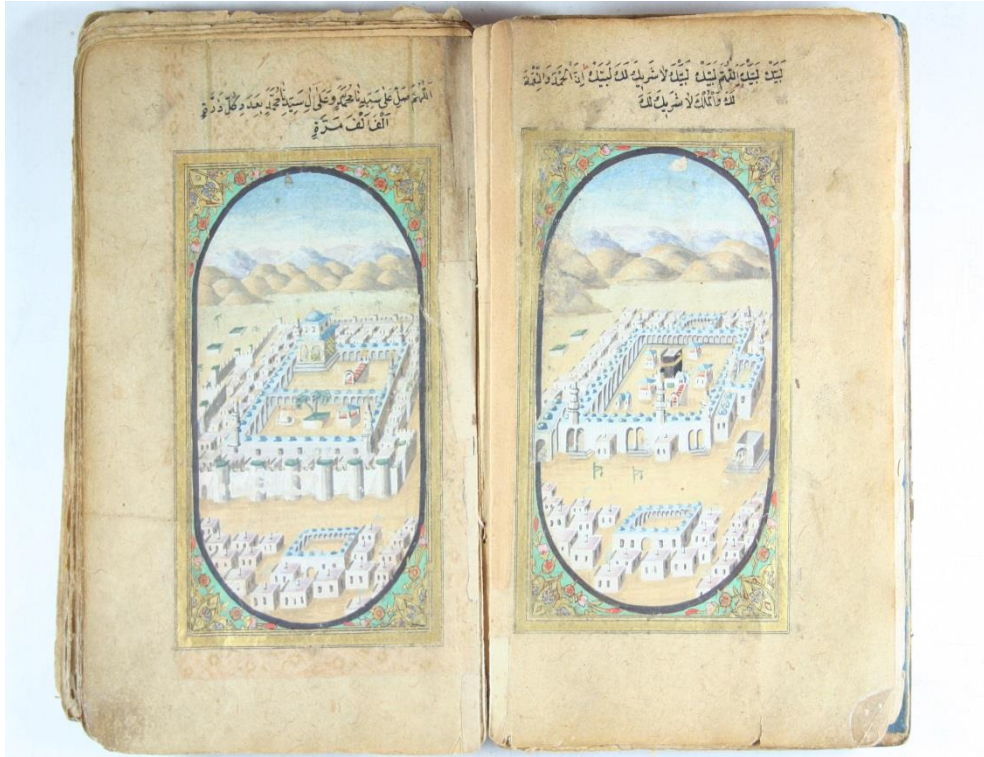 لَبَّيْكَ لَبَّيْكَ اللّٰهُمَّ لَبَّيْكَ لَبَّيْكَ لَا شَرِيكَ لَكَ لَبَّيْكَ اِنَّ الْحَمْدَ وَالنِّعْمَةَ
لَكَ وَالْمُلْكَ لَا شَرِيكَ لَكَ
اَللّٰهُمَّ صَلِّ عَلٰى سَيِّدِنَا مُحَمَّدٍ وَعَلٰى اٰلِ سَيِّدِنَا مُحَمَّدٍ بِعَدَدِ كُلِّ ذَرَّةٍ
اَلْفَ اَلْفَ مَرَّةٍ